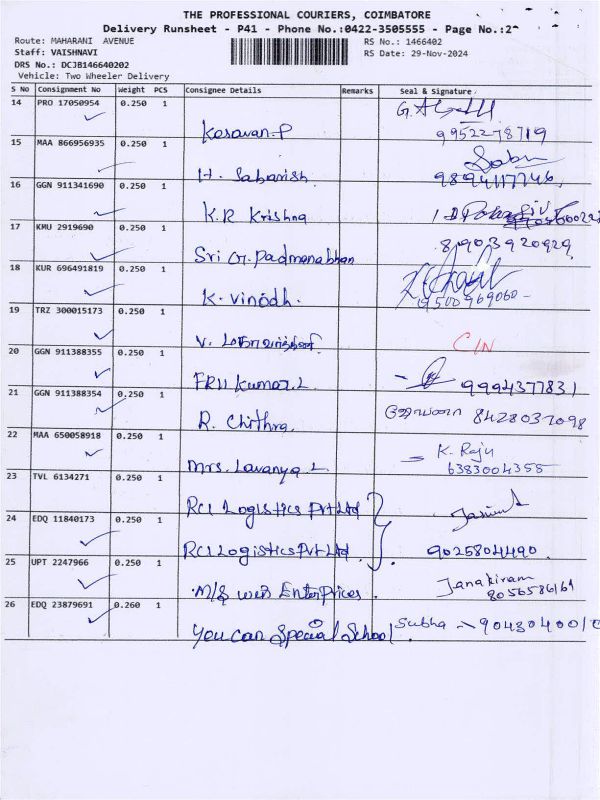 THE PROFESSIONAL COURIERS, COIMBATORE
Delivery Runsheet - P41 - Phone No.:0422-3505555 - Page No.:2
Route: MAHARANI AVENUE
RS No.: 1466402
Staff: VAISHNAVI
RS Date: 29-Nov-2024
DRS No.: DCJB146640202
Vehicle: Two Wheeler Delivery
S No Consignment No Weight PCS Consignee Details Remarks Seal & Signature
14 PRO 17050954 0.250 1
Kesavan.P 9952278719
15 MAA 866956935 0.250 1 Sabu
H. Sabarish 9894117746
16 GGN 911341690 0.250 1
K.R Krishna
17 KMU 2919690 0.250 1 8903920929
Sri G. Padmanabhan
18 KUR 696491819 0.250 1
K. Vinodh. 9500969060
19 TRZ 300015173 0.250 1
V. C/N
20 GGN 911388355 0.250 1
Kumar. L 9994377831
21 GGN 911388354 0.250 1 8428037098
R. Chithra.
22 MAA 650058918 0.250 1 K. Raju
Mrs. Lavanya L 6383004355
23 TVL 6134271 0.250 1
RCI Logistics Pvt Ltd
24 EDQ 11840173 0.250 1
RCI Logistics Pvt Ltd. 9025804490
25 UPT 2247966 0.250 1 Janakiram
M/S Web EnterPrices. 8056586161
26 EDQ 23879691 0.260 1 Subha
You Can Special School